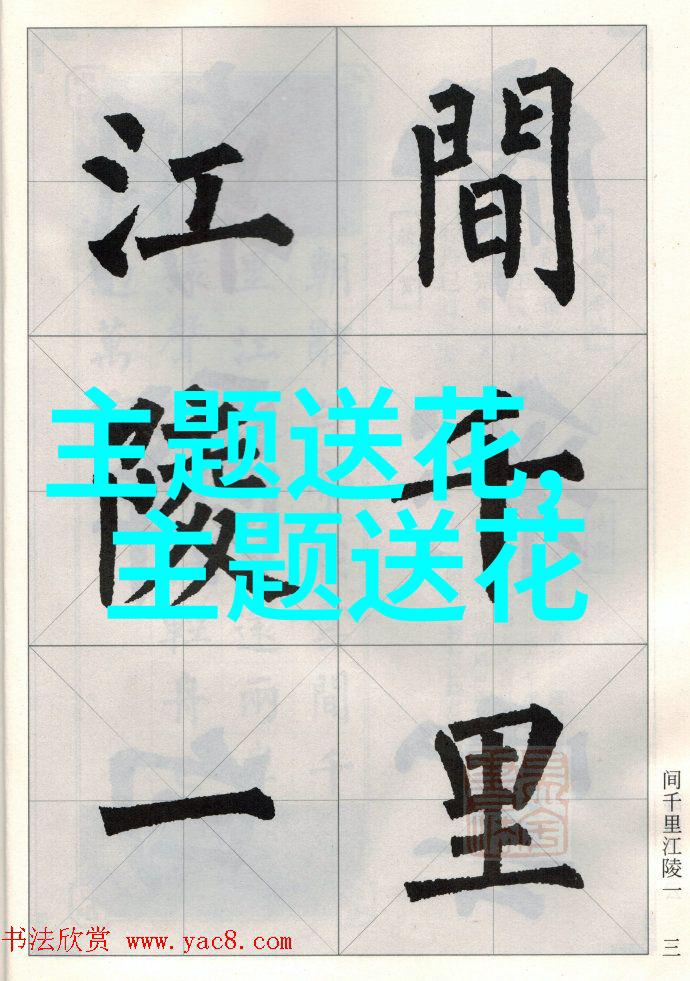 間千里
江陵一
主题送花，
主题送花
间千里江陵一
三
书法欣赏 www.yac8.com